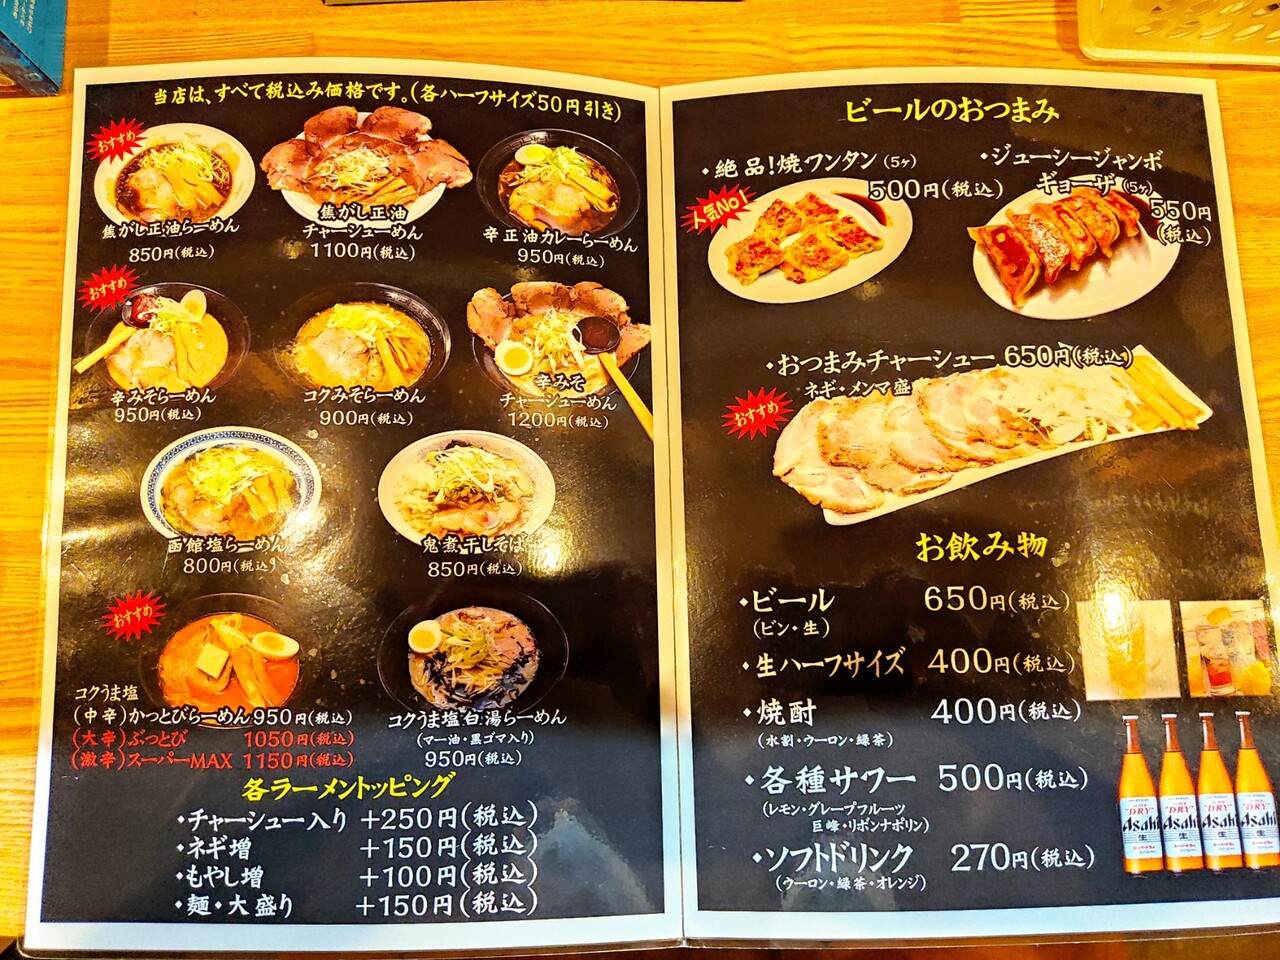 当店は、すべて税込み価格です。(各ハーフサイズ50円引き)
おすすめ
焦がし正油らーめん
850円(税込)
焦がし正油
チャーシューめん
1100円(税込)
辛正油カレーらーめん
950円(税込)
おすすめ
辛みそらーめん
950円(税込)
コクみそらーめん
900円(税込)
辛みそ
チャーシューめん
1200円(税込)
函館塩らーめん
800円(税込)
鬼煮干しそば
850円(税込)
おすすめ
コクうま塩
(中辛)かっとびらーめん 950円(税込)
(大辛)ぶっとび 1050円(税込)
(激辛)スーパーMAX 1150円(税込)
コクうま塩白湯らーめん
(マー油・黒ゴマ入り)
950円(税込)
各ラーメントッピング
・チャーシュー入り +250円(税込)
・ネギ増 +150円(税込)
・もやし増 +100円(税込)
・麺・大盛り +150円(税込)
ビールのおつまみ
・絶品!焼ワンタン(5ヶ)
500円(税込)
人気No1
・ジューシージャンボ
ギョーザ(5ヶ)
550円
(税込)
・おつまみチャーシュー 650円(税込)
ネギ・メンマ盛
おすすめ
お飲み物
・ビール 650円(税込)
(ビン・生)
・生ハーフサイズ 400円(税込)
・焼酎 400円(税込)
(水割・ウーロン・緑茶)
・各種サワー 500円(税込)
(レモン・グレープフルーツ
巨峰・リボンナポリン)
・ソフトドリンク 270円(税込)
(ウーロン・緑茶・オレンジ)
SUPER "DRY" Asahi 生
SUPER "DRY" Asahi 生
SUPER "DRY" Asahi 生
SUPER "DRY" Asahi 生